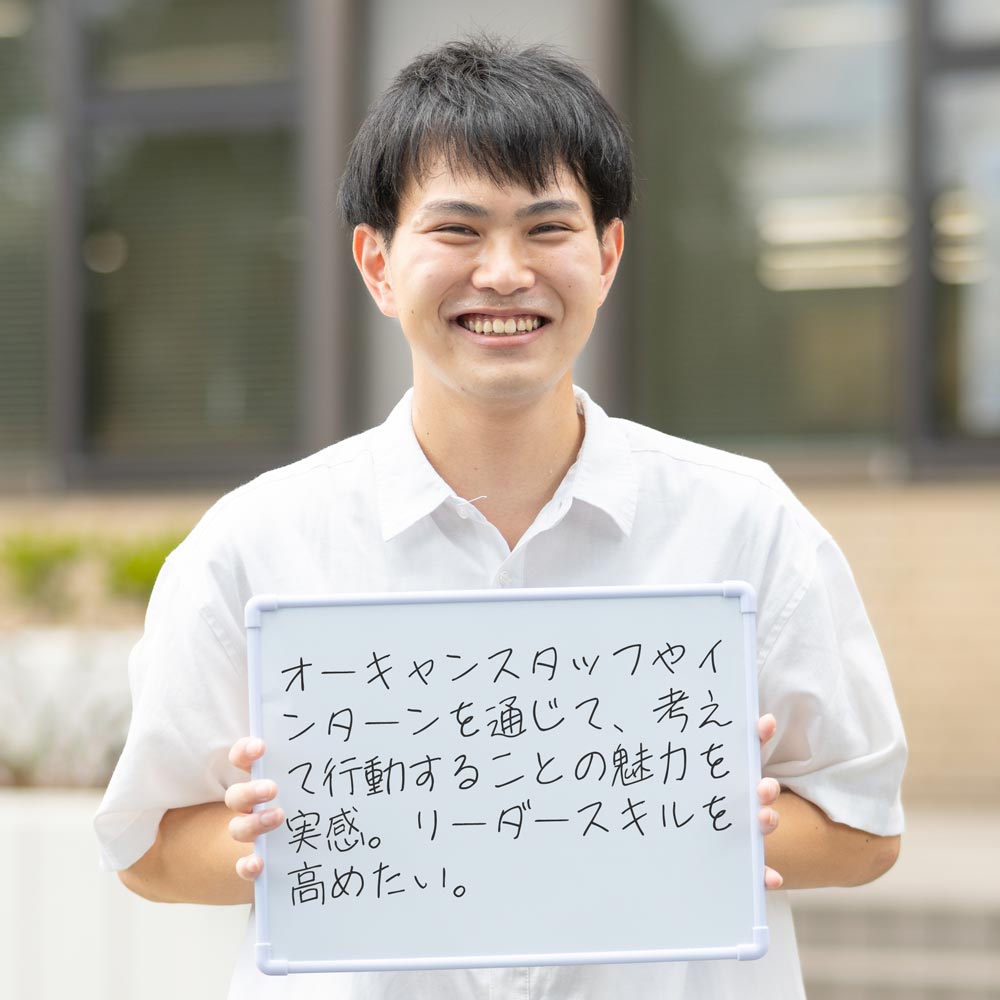 オーキャンスタッフやイ
ンターンを通じて、考え
て行動することの魅力を
実感。リーダースキルを
高めたい。